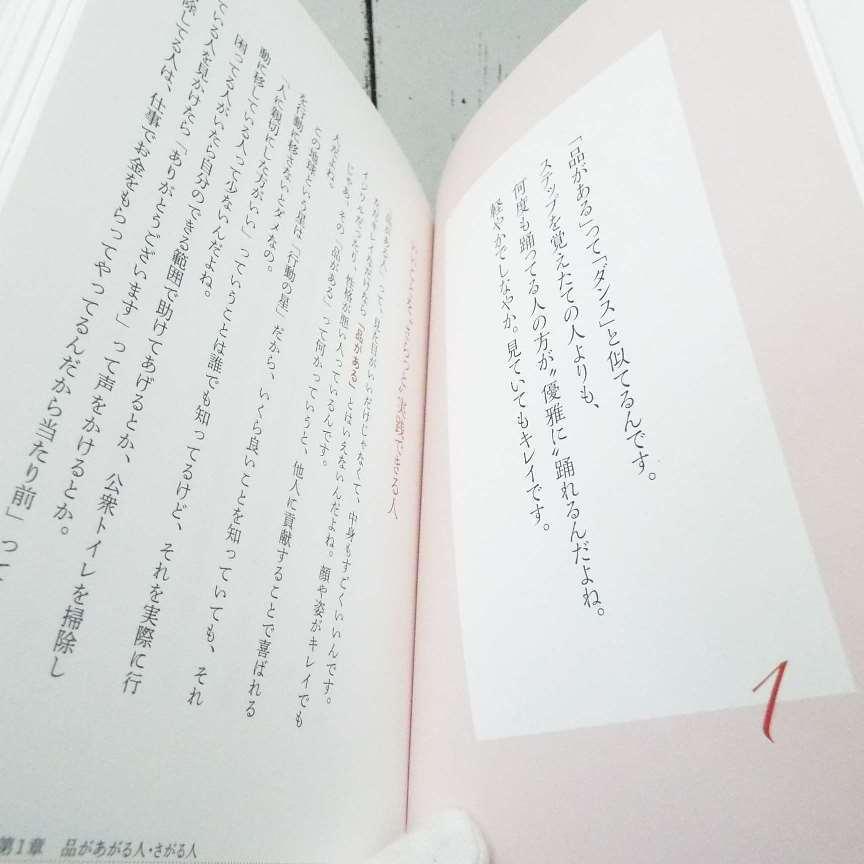 1
「品がある」って「ダンス」と似てるんです。
ステップを覚えたての人よりも、
何度も踊ってる人の方が〝優雅に〟踊れるんだよね。
軽やかでしなやか。見ていてもキレイです。
実践できる人
「品がある人」って、見た目がいいだけじゃなくて、中身もすごくいいんです。
キレイなだけなら「品がある」とはいえないんだよね。顔や姿がキレイでも
イジワルだったり、性格が悪い人っているんです。
じゃあ、その「品がある」って何かっていうと、他人に貢献することで喜ばれる
人だよね。
この地球という星は「行動の星」だから、いくら良いことを知っていても、それ
を行動に移さないとダメなの。
「人に親切にした方がいい」っていうことは誰でも知ってるけど、それを実際に行
動に移している人って少ないんだよね。
困ってる人がいたら自分のできる範囲で助けてあげるとか、公衆トイレを掃除し
ている人を見かけたら「ありがとうございます」って声をかけるとか。
除してる人は、仕事でお金をもらってやってるんだから当たり前」って
第1章 品があがる人・さがる人